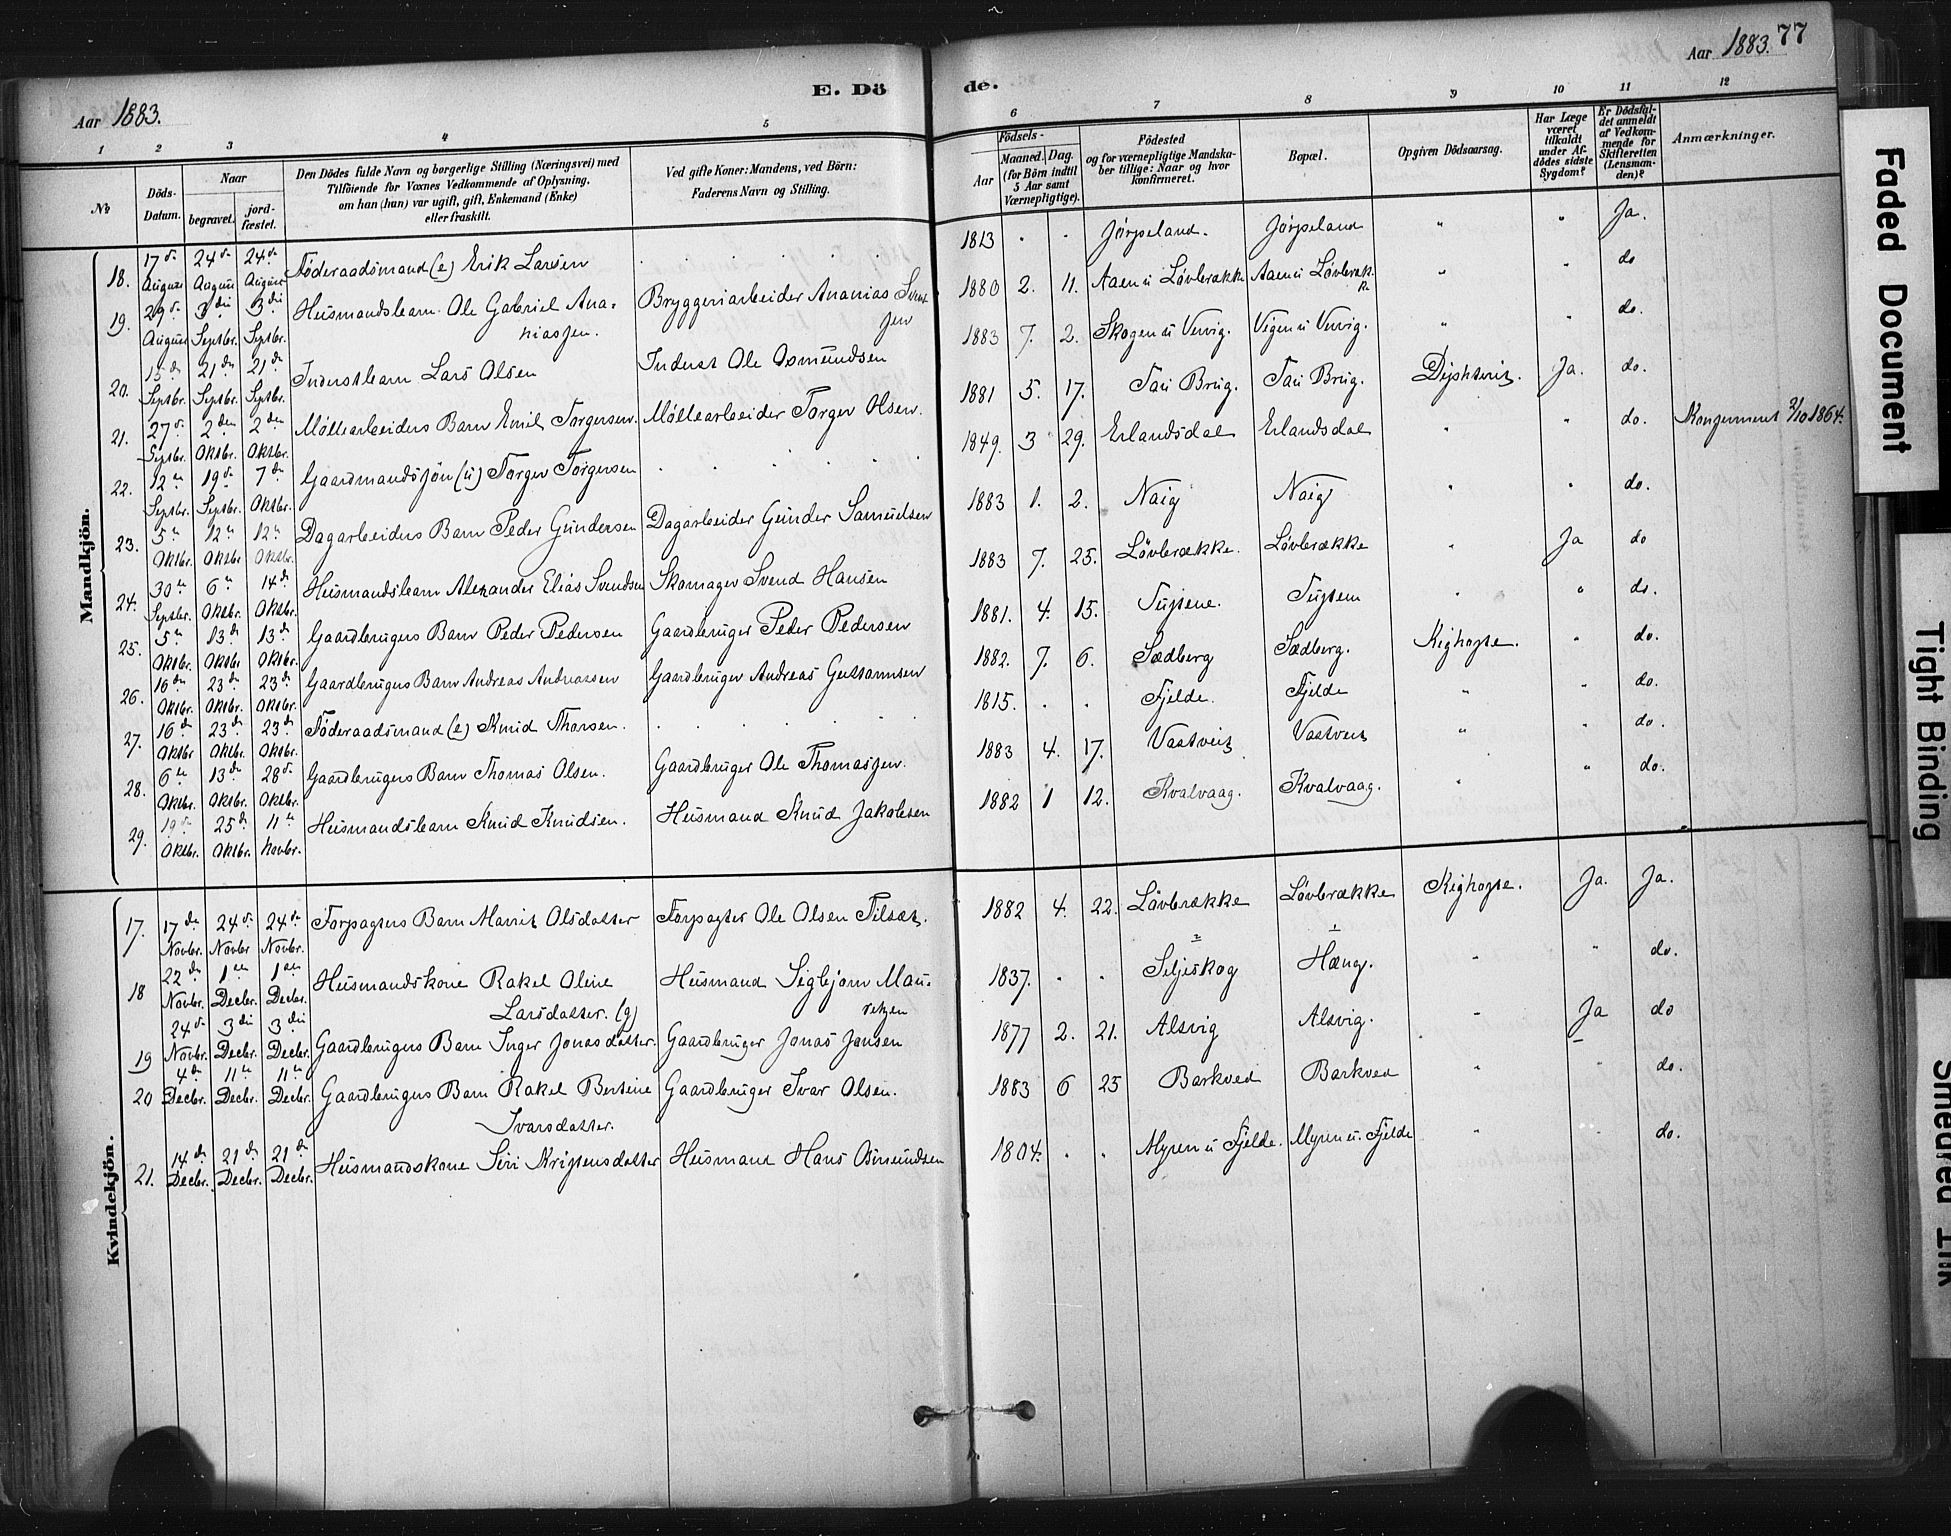 Aar 1883.
E. Dö
de.
Aar 1883. 77
1 2 3 4 5 6 7 8 9 10 11 12
№
Döds-Datum.
Naar
begravet.
jord-fæstet.
Den Dödes fulde Navn og borgerlige Stilling (Næringsvei) med
Tilföiende for Voxnes Vedkommende af Oplysning,
om han (hun) var ugift, gift, Enkemand (Enke)
eller fraskilt.
Ved gifte Koner: Mandens, ved Börn:
Faderens Navn og Stilling.
Födsels-
Aar
Maaned. Dag.
(for Börn indtil
5 Aar samt
Værnepligtige).
Födested
og for værnepligtige Mandska-
ber tillige: Naar og hvor
konfirmeret.
Bopæl.
Opgiven Dödsaarsag.
Har Læge
været
tilkaldt
under Af-
dödes sidste
Sygdom?
Er Dödsfal-
det anmeldt
af Vedkom-
mende for
Skifteretten
(Lensman-
den)?
Anmærkninger.
Mandkjön.
18. 17de August 24de August 24de August Föderaadsmand (e) Erik Larsen 1813 . . Jörpeland. Jörpeland " " Ja.
19. 29de August 3die Septbr. 3die Septbr. Husmandsbarn Ole Gabriel Ana-
niassen. Bryggeriarbeider Ananias Svend
sen 1880 2. 11. Aaen u Lövbrække Aaen u Lövbræk-
ke " " do
20. 15de Septbr. 21de Septbr. 21de Septbr. Inderstbarn Lars Olsen Inderst Ole Osmundsen 1883 7. 2. Skogen u Vervig. Vigen u Vervig. " " do.
21. 27de Septbr. 2den Oktbr. 2den Oktbr. Möllearbeiders Barn Emil Torgersen. Möllearbeider Torger Olsen. 1881 5. 17. Tau Brug. Tau Brug. Difterit. Ja. do.
22. 12te Septbr. 19de Septbr. 7de Oktbr. Gaardmandssön (u) Torger Torgersen 1849. 3 29. Erlandsdal Erlandsdal " " do. Konfirmeret 2/10 1864.
23. 5te Oktbr. 12te Oktbr 12te Oktbr. Dagarbeiders Barn Peder Gundersen Dagarbeider Gunder Samuelsen 1883 1. 2. Naig Naig " " do.
24. 30te Septbr. 6te Oktbr. 14de Oktbr. Husmandsbarn Alexander Elias Svendsen Skomager Svend Hansen 1883 7. 25. Lövbrække. Lövbrække " Ja do
25. 5te Oktbr. 13de Oktbr 13de Oktbr. Gaardbrugers Barn Peder Pedersen Gaardbruger Peder Pedersen 1881. 4. 15. " " do.
26. 16de Oktbr. 23de Oktbr. 23de Oktbr. Gaardbrugers Barn Andreas Andreassen Gaardbruger Andreas 1882. 7. 6. Sædberg Sædberg. Kighoste. " do.
27. 16de Oktbr 23de Oktbr. 23de Oktbr. Föderaadsmand (e) Knud Thorsen. 1815. . . Fjelde. Fjelde " " do.
28. 6te Oktbr. 13de Oktbr. 28de Oktbr. Gaardbrugers Barn Thomas Olsen. Gaardbruger Ole Thomassen. 1883 4. 17. Vastveit Vastveit " " do.
29. 19de Oktbr. 25de Oktbr. 11te Novbr. Husmandsbarn Knud Knudsen. Husmand Knud Jakobsen 1882 1 12. Kvalvaag. Kvalvaag. " " do.
Kvindekjön.
17. 17de Novbr. 24de Novbr 24de Novbr. Forpagters Barn Marrit Olsdatter Forpagter Ole Olsen 1882 4. 22. Lövbrække Lövbrække Kighoste. Ja. Ja.
18 22de Novbr. 1ste Decbr. 1ste Decbr. Husmandskone Rakel Oline
Larsdatter. (g) Husmand Sigbjörn Mau-
ritzen 1837. . . Seljeskog Hæng. " " do.
19 24de Novbr. 3die Decbr. 3die Decbr. Gaardbrugers Barn Inger Jonasdatter. Gaardbruger Jonas Jensen 1877 2. 21. Alsvig Alsvig. " Ja do
20 4de Decbr. 11te Decbr. 11te Decbr. Gaardbrugers Barn Rakel Bertine
Ivarsdatter. Gaardbruger Ivar Olsen. 1883 6 25 Barkved Barkved " " do.
21. 14de Decbr. 21de Decbr. 21de Decbr. Husmandskone Siri Kristensdatter Husmand Hans Osmundsen 1804. . . Myren u Fjelde. Myren u. Fjelde " " do.
Faded Document
Tight Binding
Smeared Ink